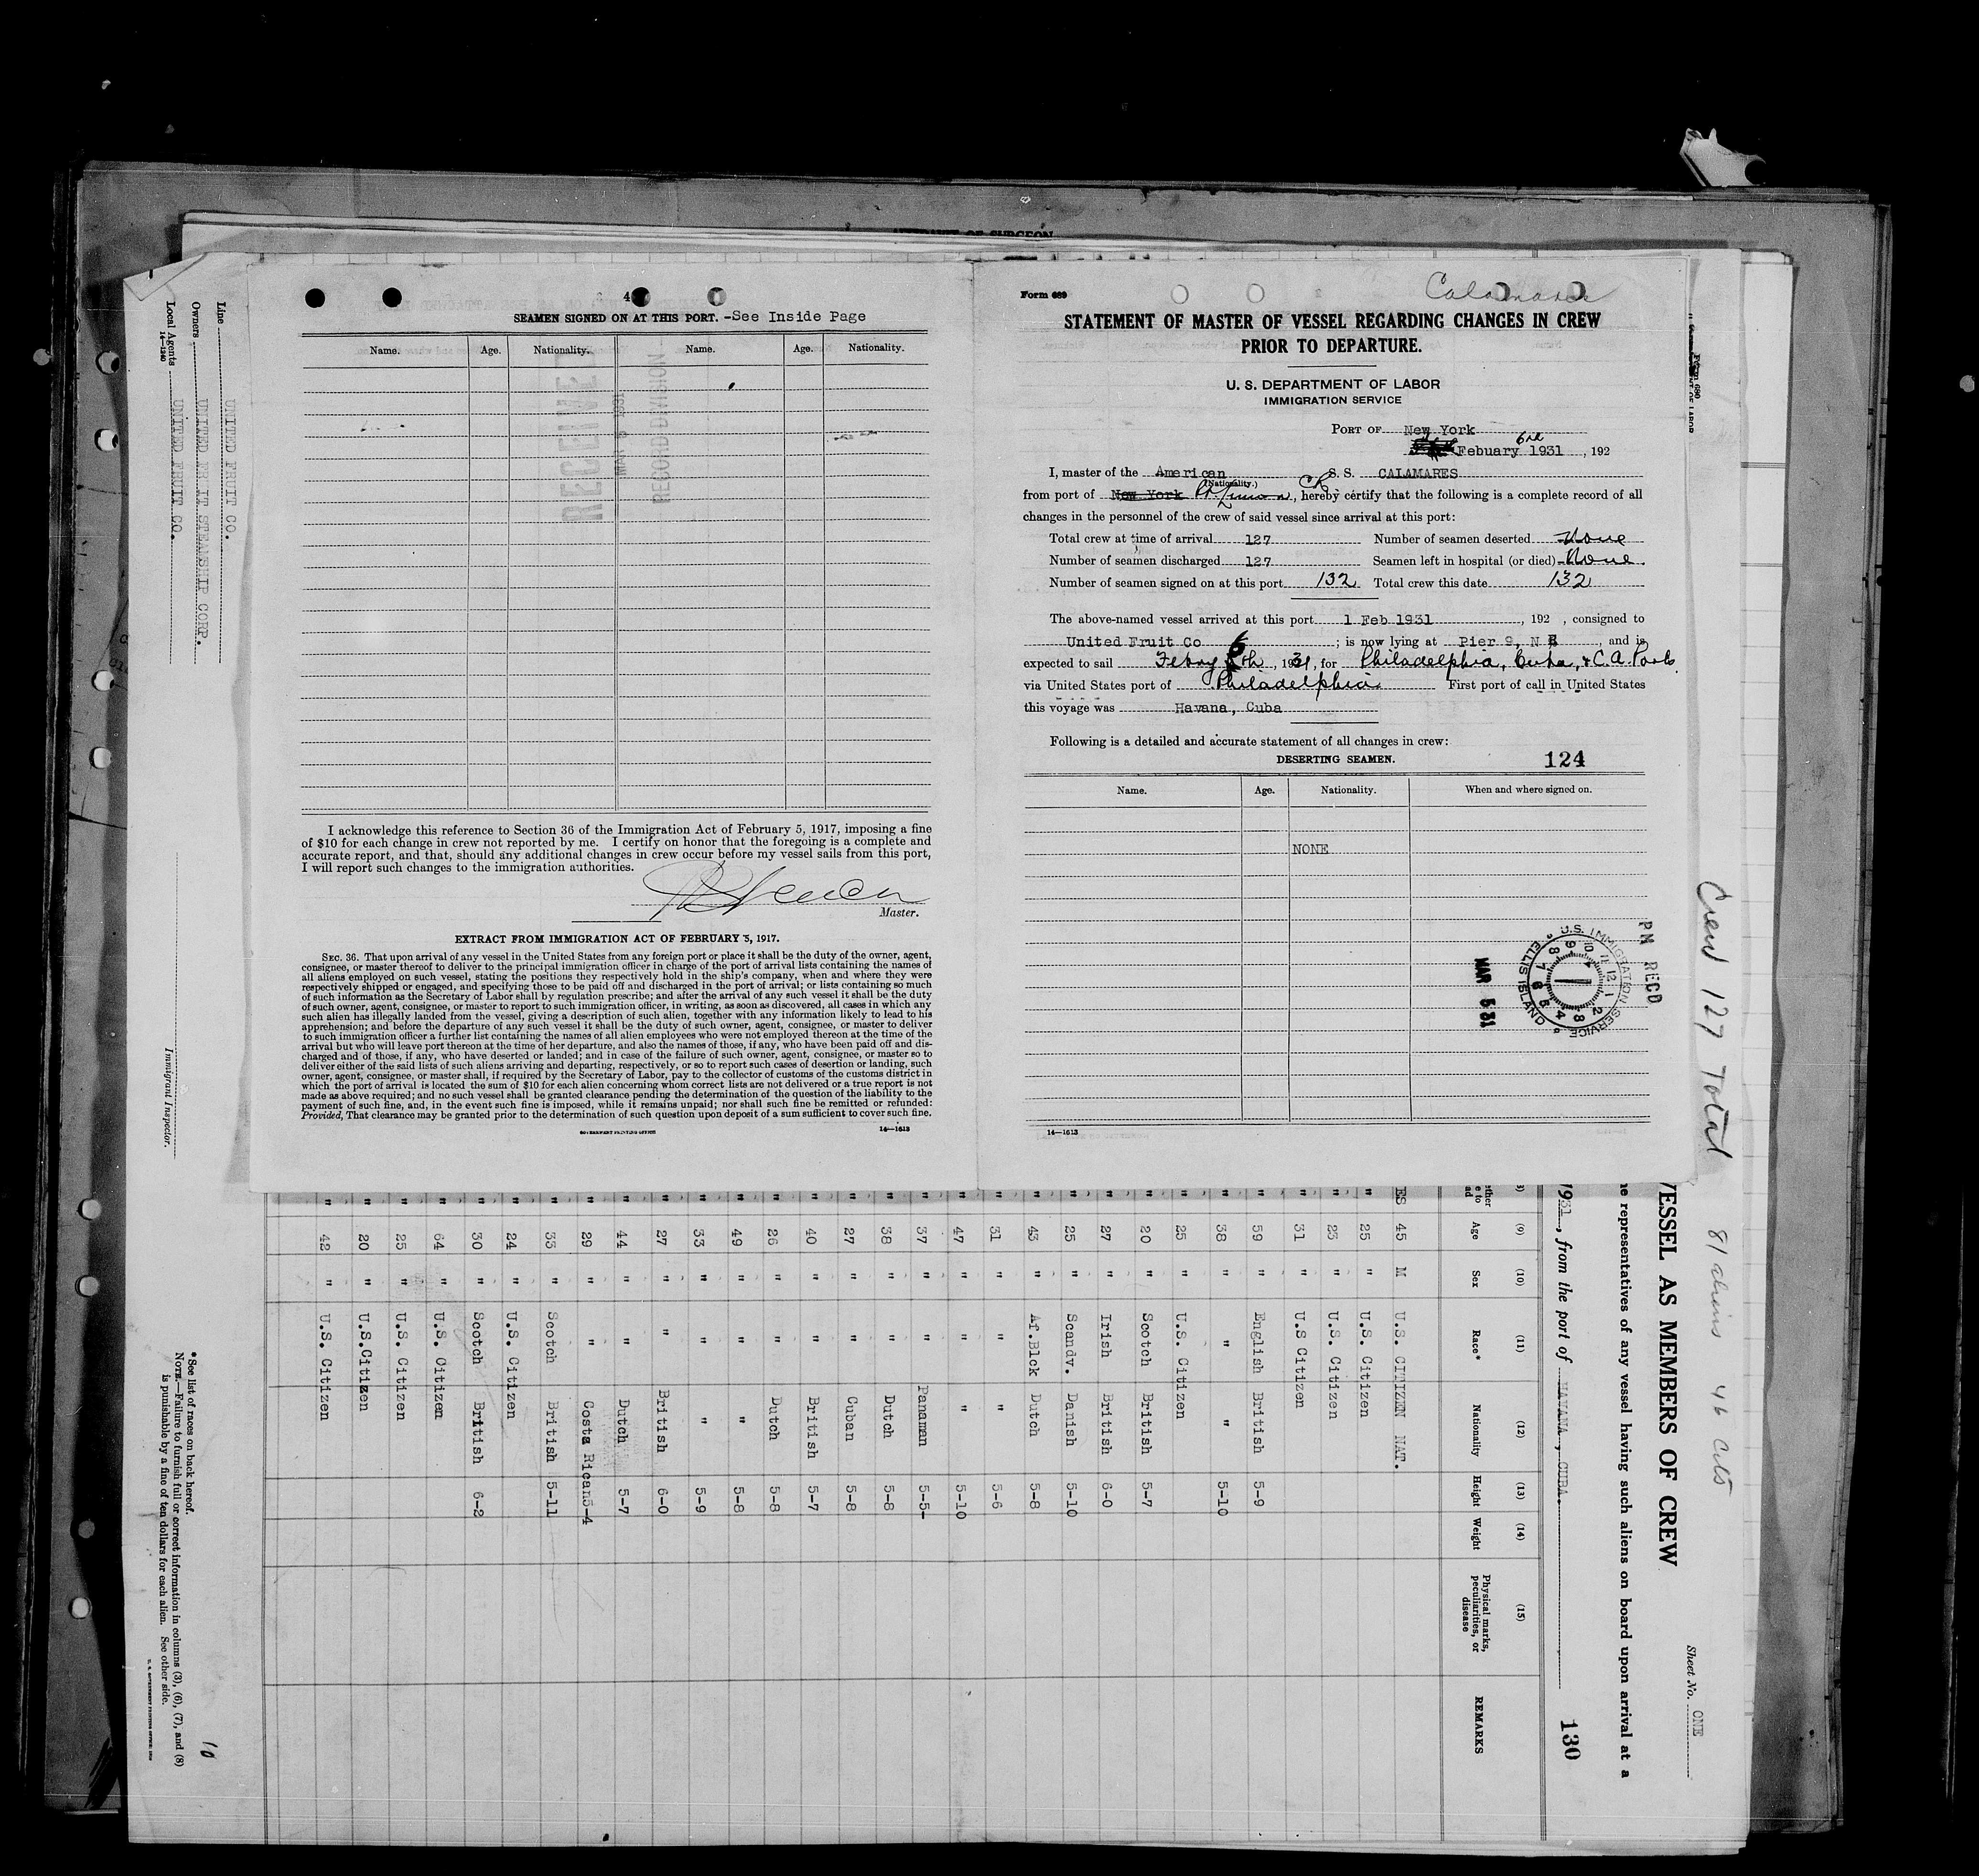 4
SEAMEN SIGNED ON AT THIS PORT. -See Inside Page
Name. Age. Nationality. Name. Age. Nationality.
RECEIVED
RECORD DIVISION
I acknowledge this reference to Section 36 of the Immigration Act of February 5, 1917, imposing a fine
of $10 for each change in crew not reported by me. I certify on honor that the foregoing is a complete and
accurate report, and that, should any additional changes in crew occur before my vessel sails from this port,
I will report such changes to the immigration authorities.
Master.
EXTRACT FROM IMMIGRATION ACT OF FEBRUARY 5, 1917.
SEC. 36. That upon arrival of any vessel in the United States from any foreign port or place it shall be the duty of the owner, agent,
consignee, or master thereof to deliver to the principal immigration officer in charge of the port of arrival lists containing the names of
all aliens employed on such vessel, stating the positions they respectively hold in the ship's company, when and where they were
respectively shipped or engaged, and specifying those to be paid off and discharged in the port of arrival; or lists containing so much
of such information as the Secretary of Labor shall by regulation prescribe; and after the arrival of any such vessel it shall be the duty
of such owner, agent, consignee, or master to report to such immigration officer, in writing, as soon as discovered, all cases in which any
such alien has illegally landed from the vessel, giving a description of such alien, together with any information likely to lead to his
apprehension; and before the departure of any such vessel it shall be the duty of such owner, agent, consignee, or master to deliver
to such immigration officer a further list containing the names of all alien employees who were not employed thereon at the time of the
arrival but who will leave port thereon at the time of her departure, and also the names of those, if any, who have been paid off and dis-
charged and of those, if any, who have deserted or landed; and in case of the failure of such owner, agent, consignee, or master so to
deliver either of the said lists of such aliens arriving and departing, respectively, or so to report such cases of desertion or landing, such
owner, agent, consignee, or master shall, if required by the Secretary of Labor, pay to the collector of customs of the customs district in
which the port of arrival is located the sum of $10 for each alien concerning whom correct lists are not delivered or a true report is not
made as above required; and no such vessel shall be granted clearance pending the determination of the question of the liability to the
payment of such fine, and, in the event such fine is imposed, while it remains unpaid; nor shall such fine be remitted or refunded:
Provided, That clearance may be granted prior to the determination of such question upon deposit of a sum sufficient to cover such fine.
GOVERNMENT PRINTING OFFICE 14—1613
Form 689
Calamares
STATEMENT OF MASTER OF VESSEL REGARDING CHANGES IN CREW
PRIOR TO DEPARTURE.
U. S. DEPARTMENT OF LABOR
IMMIGRATION SERVICE
PORT OF New York
6th
Febuary 1931, 192
I, master of the American S. S. CALAMARES
(Nationality.)
from port of New York Pt Limon CR, hereby certify that the following is a complete record of all
changes in the personnel of the crew of said vessel since arrival at this port:
Total crew at time of arrival 127 Number of seamen deserted None
Number of seamen discharged 127 Seamen left in hospital (or died) None
Number of seamen signed on at this port 132 Total crew this date 132
The above-named vessel arrived at this port 1 Feb 1931, 192 , consigned to
United Fruit Co ; is now lying at Pier 9, N R , and is
expected to sail Febry 6th, 1931, for Philadelphia, Cuba, & C.A. Ports
via United States port of Philadelphia First port of call in United States
this voyage was Havana, Cuba
Following is a detailed and accurate statement of all changes in crew:
DESERTING SEAMEN. 124
Name. Age. Nationality. When and where signed on.
NONE
U.S. IMMIGRATION SERVICE ELLIS ISLAND
MAR 5 31
PM RECD
14—1613
Line UNITED FRUIT CO.
Owners UNITED FR IT STEAMSHIP CORP.
Local Agents UNITED FRUIT CO.
14—1240
Immigrant Inspector.
Crew 127 Total 81 aliens 46 Cits
Sheet No. ONE
VESSEL AS MEMBERS OF CREW
he representatives of any vessel having such aliens on board upon arrival at a
1931, from the port of HAVANA, CUBA.
130
(9) (10) (11) (12) (13) (14) (15)
Age Sex Race* Nationality Height Weight Physical marks, peculiarities, or disease REMARKS
ES 45 M U.S. CITIZEN NAT.
" 25 " U.S. Citizen
" 23 " U.S. Citizen
" 31 " U.S Citizen
" 59 " English British 5-9
" 38 " " " 5-10
" 25 " U.S. Citizen
" 20 " Scotch British 5-7
" 27 " Irish British 6-0
" 25 " Scandv. Danish 5-10
" 43 " Af.Blck Dutch 5-8
" 31 " " " 5-6
" 47 " " " 5-10
" 37 " " Panaman 5-5-
" 38 " " Dutch 5-8
" 27 " " Cuban 5-8
" 40 " " British 5-7
" 26 " " Dutch 5-8
" 49 " " " 5-8
" 33 " " " 5-9
" 27 " " British 6-0
" 44 " " Dutch 5-7
" 29 " " Costa Rican5-4
" 33 " Scotch British 5-11
" 24 " U.S. Citizen
" 30 " Scotch British 6-2
" 64 " U.S. Citizen
" 25 " U.S. Citizen
" 20 " U.S.Citizen
" 42 " U.S. Citizen
*See list of races on back hereof.
NOTE.—Failure to furnish full or correct information in columns (3), (6), (7), and (8)
is punishable by a fine of ten dollars for each alien. See other side.
10